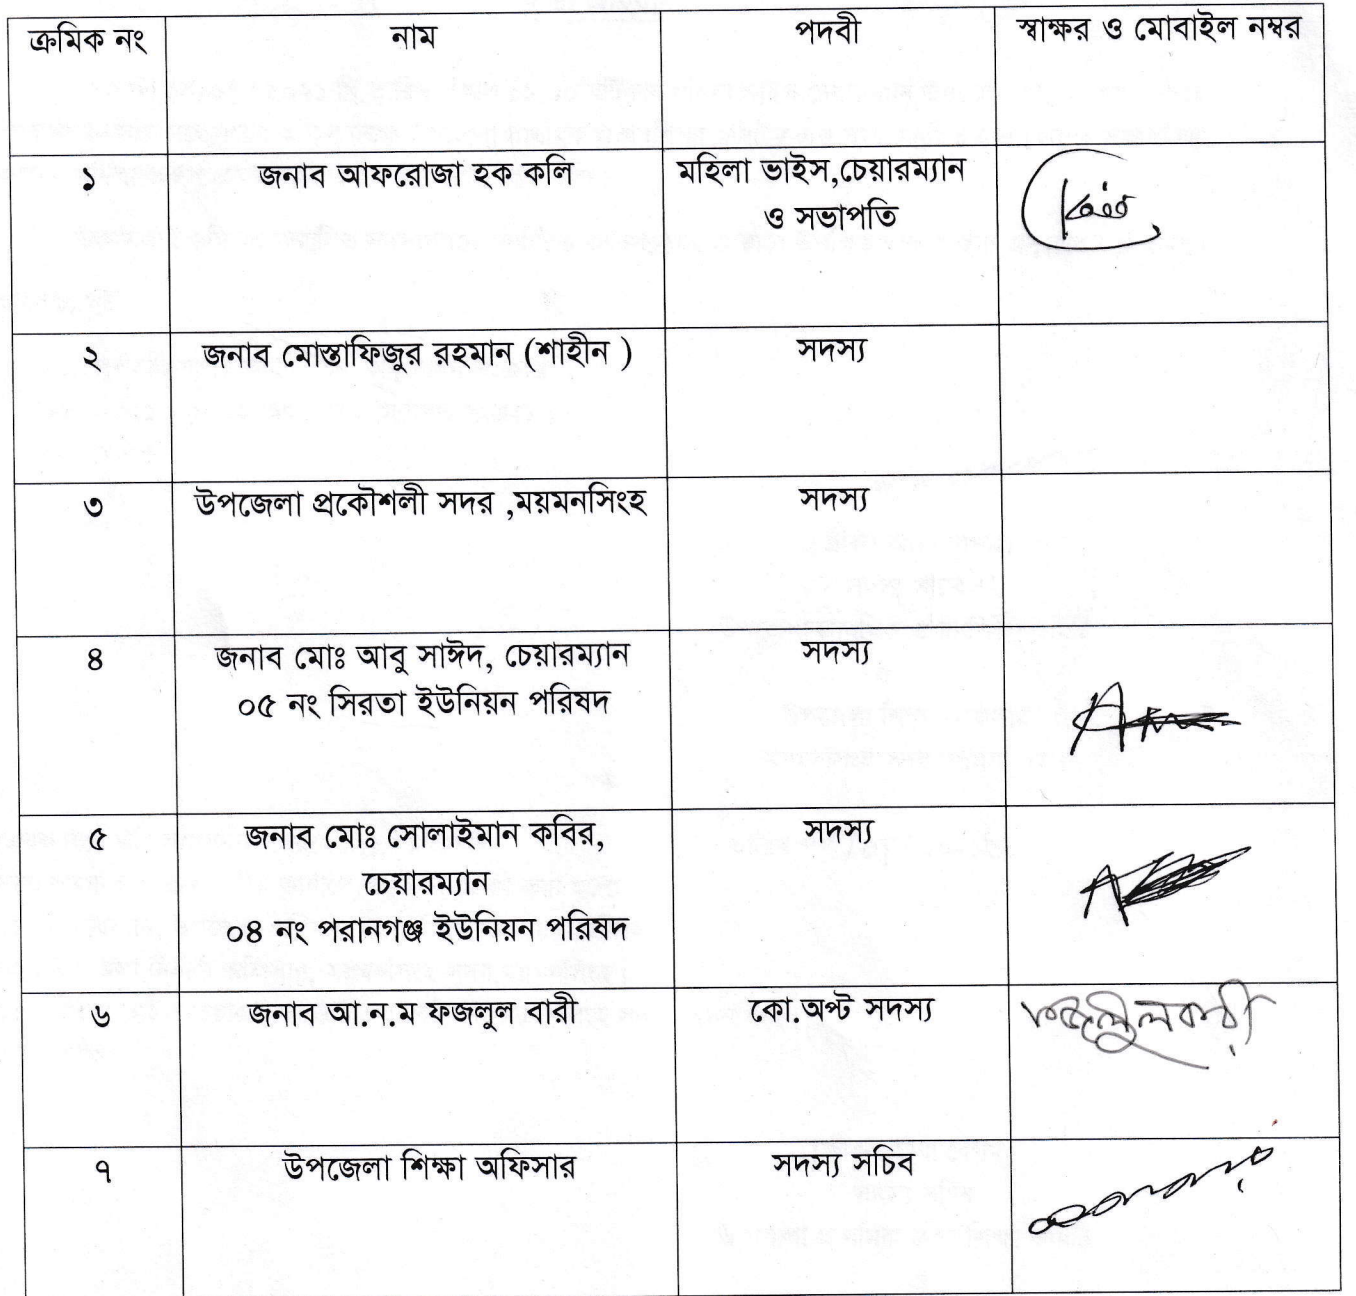 ক্রমিক নং নাম পদবী স্বাক্ষর ও মোবাইল নম্বর
১ জনাব আফরোজা হক কলি মহিলা ভাইস,চেয়ারম্যান
ও সভাপতি
২ জনাব মোস্তাফিজুর রহমান (শাহীন ) সদস্য
৩ উপজেলা প্রকৌশলী সদর ,ময়মনসিংহ সদস্য
৪ জনাব মোঃ আবু সাঈদ, চেয়ারম্যান সদস্য
০৫ নং সিরতা ইউনিয়ন পরিষদ
৫ জনাব মোঃ সোলাইমান কবির, সদস্য
চেয়ারম্যান
০৪ নং পরানগঞ্জ ইউনিয়ন পরিষদ
৬ জনাব আ.ন.ম ফজলুল বারী কো.অপ্ট সদস্য ফজলুলবারী
৭ উপজেলা শিক্ষা অফিসার সদস্য সচিব